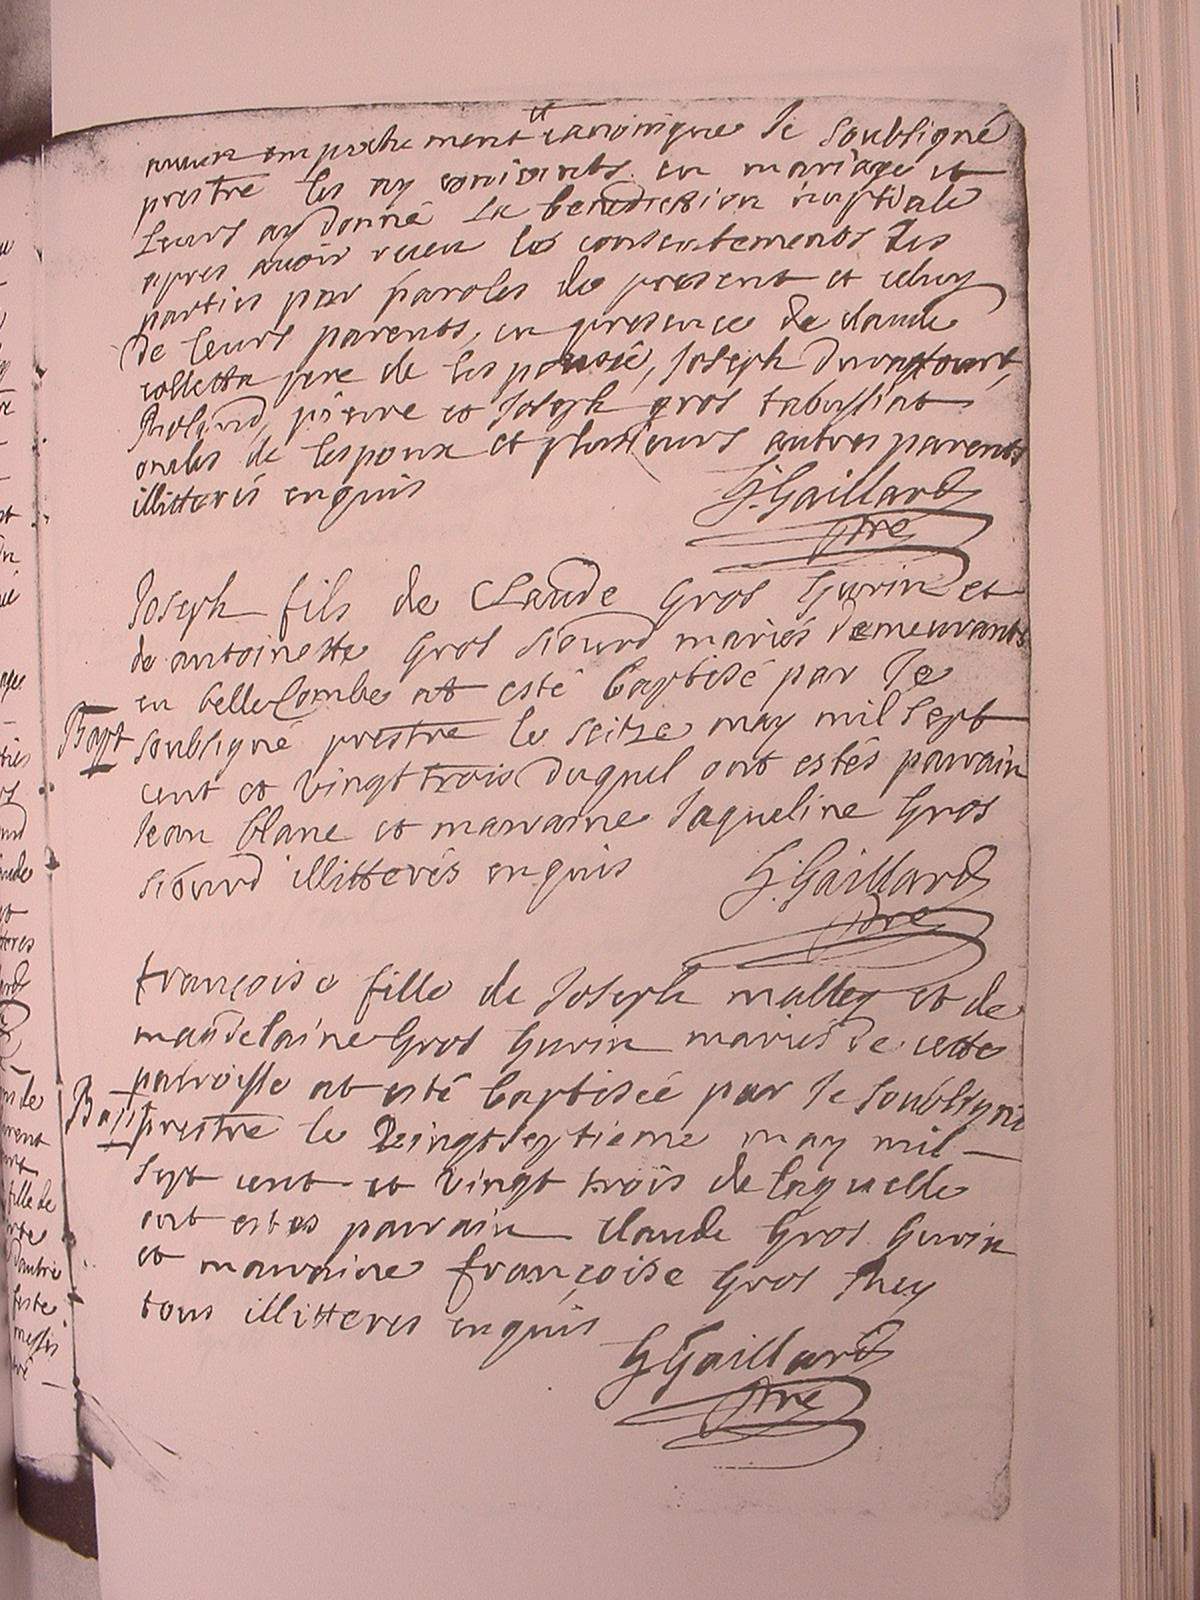 aucun empechement canonique Je soubsigné
prestre les ay conioincts en mariage et
leurs ay donné La benediction nuptiale
apres avoir receu les consentements des
parties par paroles de present et celuy
de leurs parents, en presence de claude
colletta pere de lespousée, Joseph
Roland, pierre et Joseph gros tabussiat
oncles de lespoux et plusieurs autres parents
illitterés enquis
G. Gaillard
ptre
Joseph fils de Claude Gros Gurin et
de antoinette Gros Siourd mariés demeurants
en belleCombe at esté baptisé par Je
Bapt soubsigné prestre le seitze may mil sept
cent et vingt trois duquel ont estés parrain
Jean blanc et marraine Jaqueline Gros
siourd illitterés enquis
G. Gaillard
ptre
françoise fille de Joseph malley et de
magdelaine Gros Gurin mariés de cette
parroisse at esté baptisée par Je soubsigné
Bapt prestre le Vingtseptieme may mil
sept cent et vingt trois de laquelle
ont estes parrain claude Gros Gurin
et marraine françoise Gros
tous illitteres enquis
G Gaillard
ptre